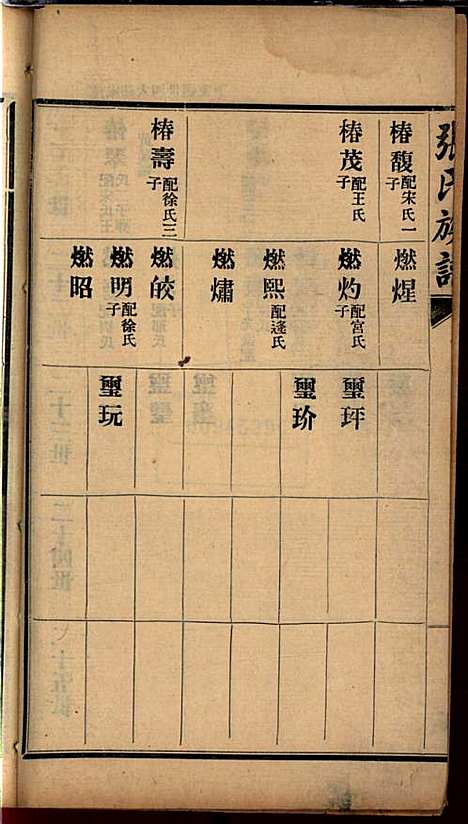 張氏族譜
椿馥配宋氏一子
椿茂配王氏子
椿壽配徐氏三子
燃煋
燃灼配宮氏子
燃熙配逄氏
燃熽
燃皎
燃明配徐氏子
燃昭
璽玶
璽玠
璽玩